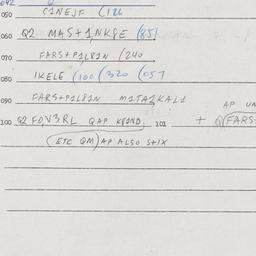 042
050 C1NEJF (12L
060 Q2 MAS+1,NK8E (851
070 FARS+P1L81N (240
080 IKELE (100 (320 (057
090 FARS+P1L81N M1TA1KAL1
AP UN
100 Q2 FOV3RL QAP K81ND, 101 + Q(FARS+
(ETC QM) AP ALSO S+IX